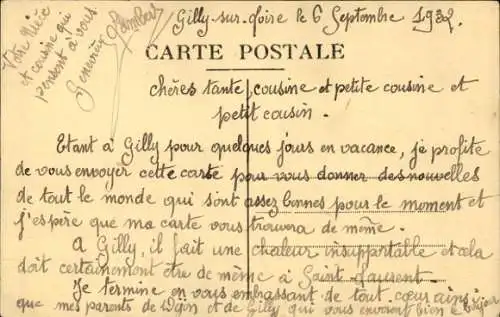 Gilly-sur-Loire le 6 Septembre 1932.
CARTE POSTALE
chères tante, cousine et petite cousine et
petit cousin.
Etant à Gilly pour quelques jours en vacance, je profite
de vous envoyer cette carte pour vous donner des nouvelles
de tout le monde qui sont assez bonnes pour le moment et
j'espère que ma carte vous trouvera de même.
A Gilly, il fait une chaleur insupportable et cela
doit certainement être de même à Saint-Laurent.
Je termine en vous embrassant de tout cœur ainsi
que mes parents de Dijon et de Gilly qui vous envoient bien le bonjour
Votre nièce
et cousine qui
pensent à vous.
Genevière Lambert